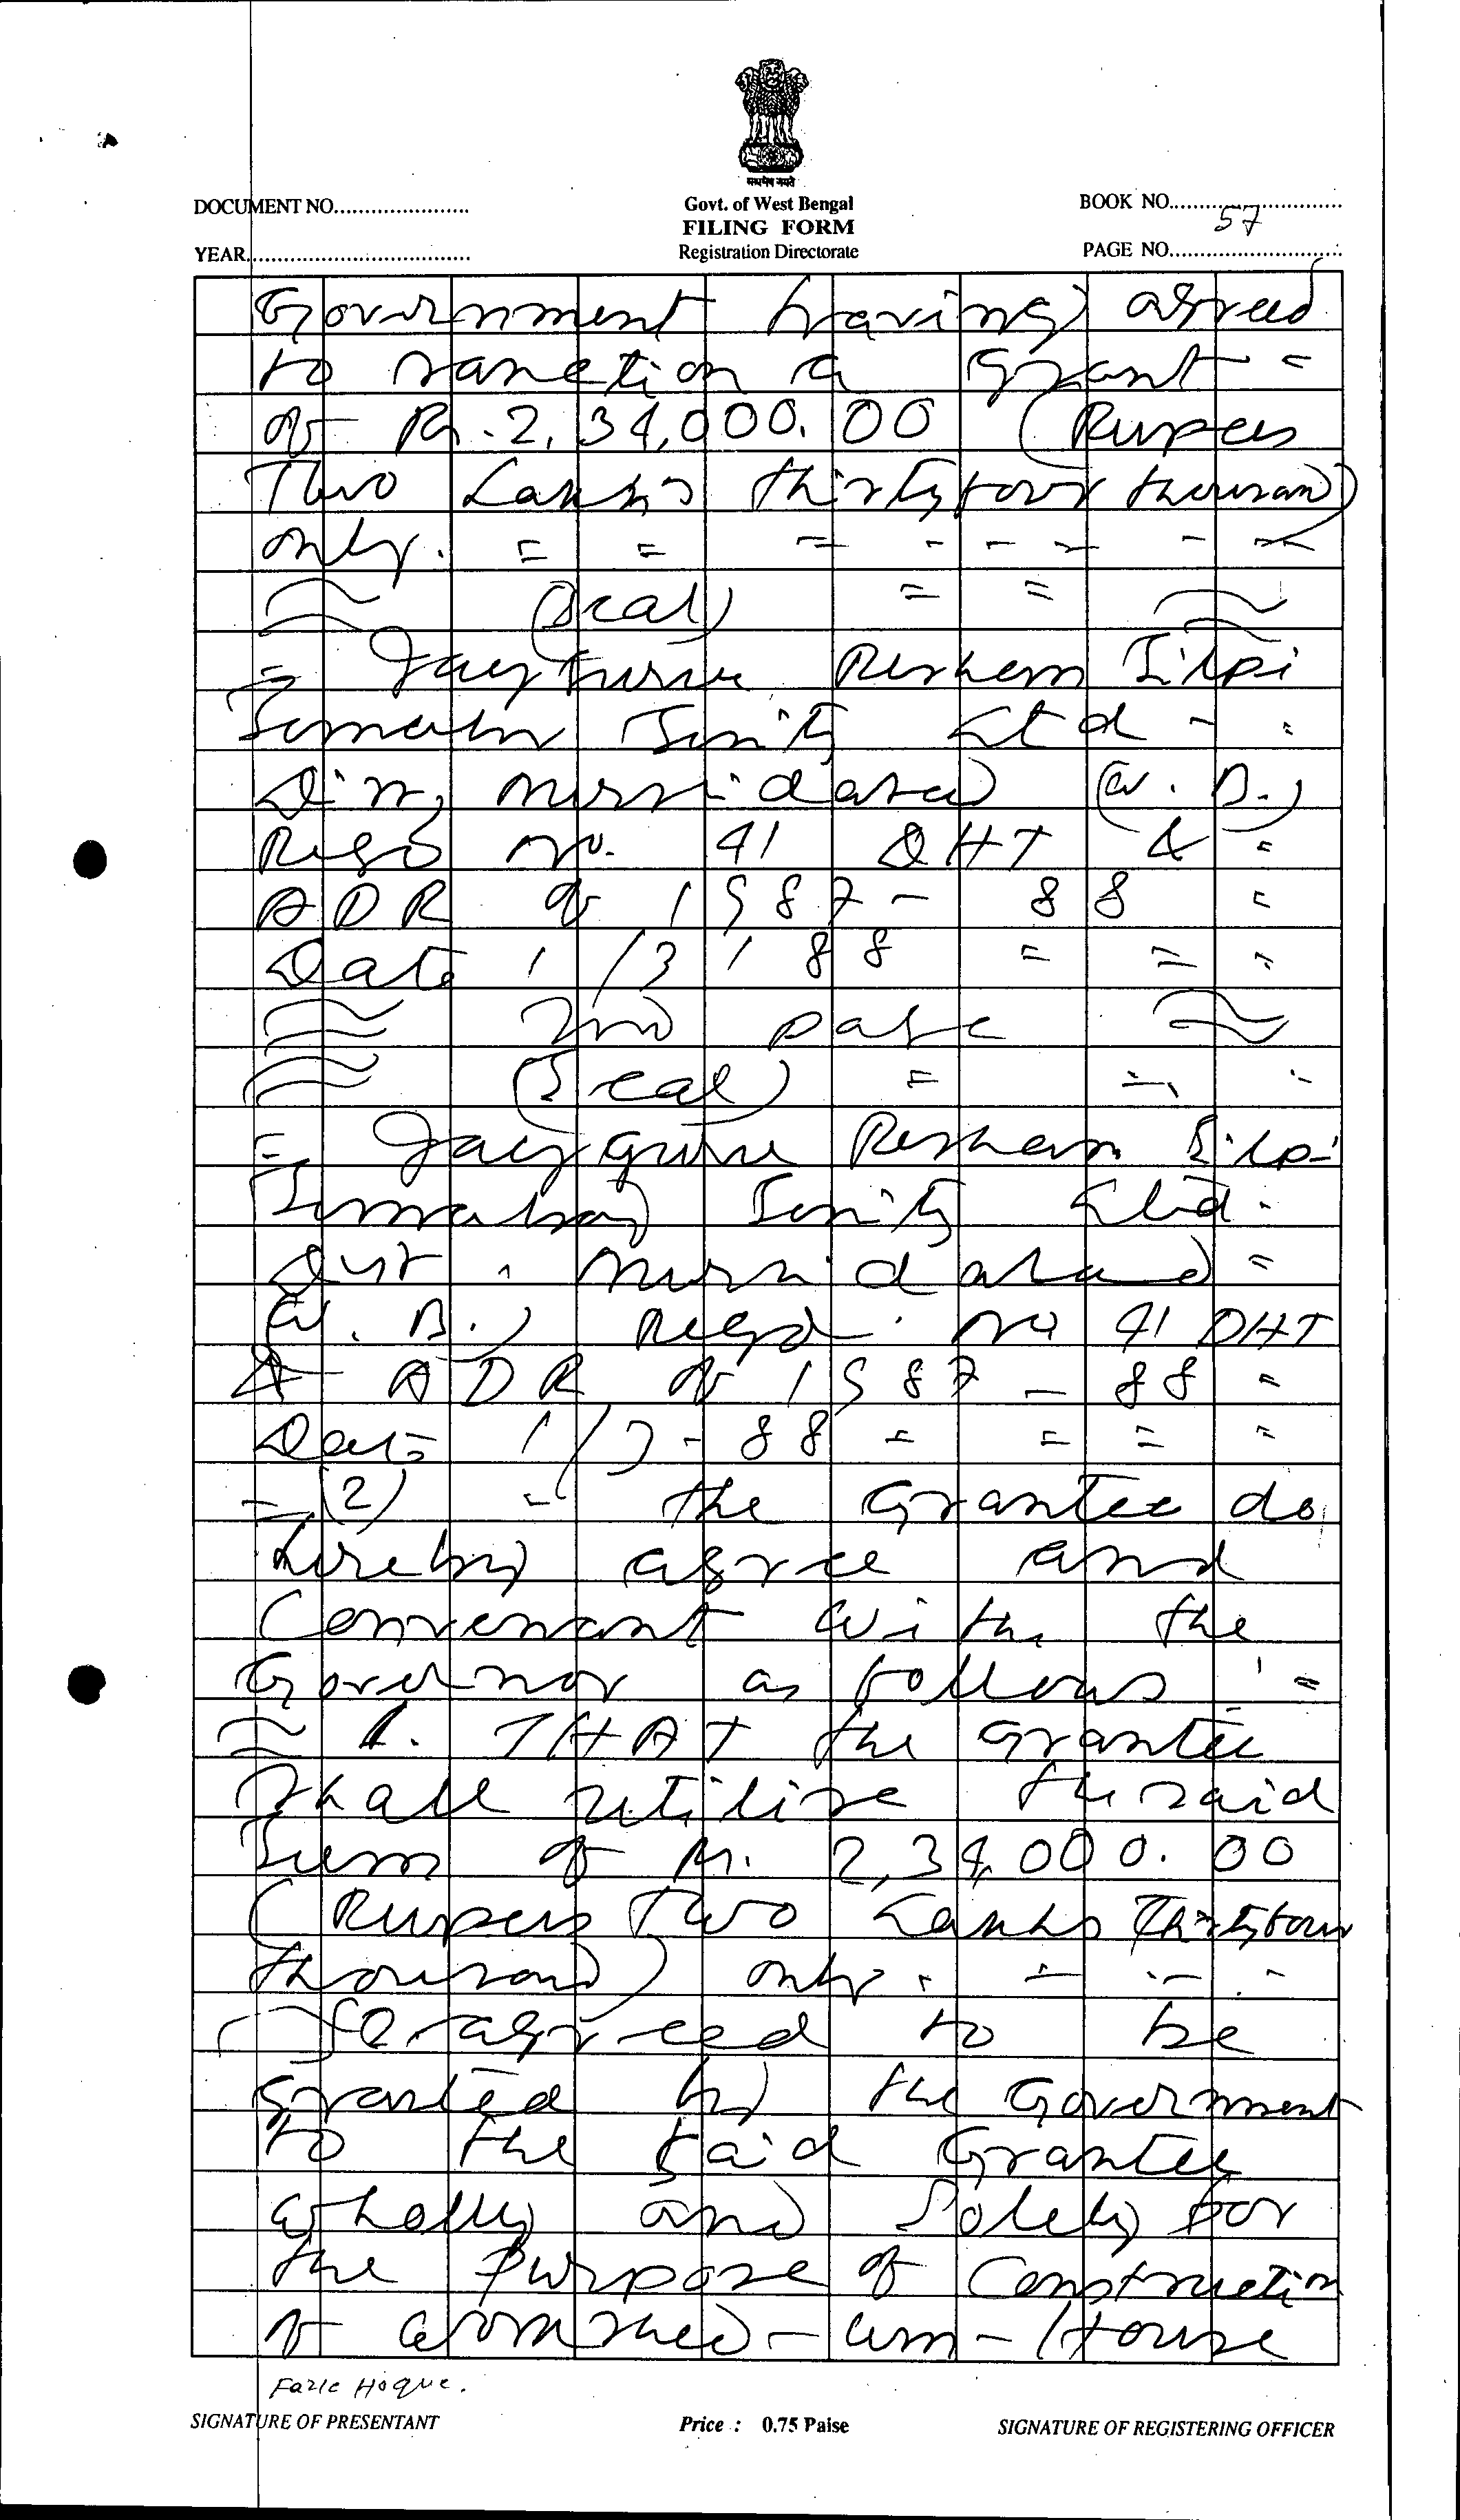 सत्यमेव जयते
DOCUMENT NO.
Govt. of West Bengal
BOOK NO.
FILING FORM
57
YEAR
Registration Directorate
PAGE NO.
Government having agreed
to sanction a grant =
of Rs. 2,34,000.00 (Rupees
Two Lakhs thirtyfour thousand)
only. = = = - - - - -
(Seal) = =
= Jayguru Resham Silpi
Samabay Samity Ltd -
Dist, Mursidabad (W. B.)
Regd no. 41 DHT & =
ADR of 1987 - 88 =
Date 1/3/88 = = =
2nd page
(Seal) =
= Jayguru Resham Silpi
Samabay Samity Ltd.
Dist. Mursidabad =
(W. B.) Regd. no 41 DHT
& ADR of 1987 - 88 =
Date 1/3-88 = = = =
= (2) - the Grantee do
hereby agree and
Convenant with the
Governor as follows =
1. THAT the grantee
shall utilise the said
Sum of Rs. 2,34,000.00
(Rupees Two Lakhs Thirtyfour
thousand) only.
So agreed to be
granted by the Government
to the said Grantee
wholly and Solely for
the purpose of Construction
of workshed-cum-House
Fazle Hoque.
SIGNATURE OF PRESENTANT
Price : 0.75 Paise
SIGNATURE OF REGISTERING OFFICER